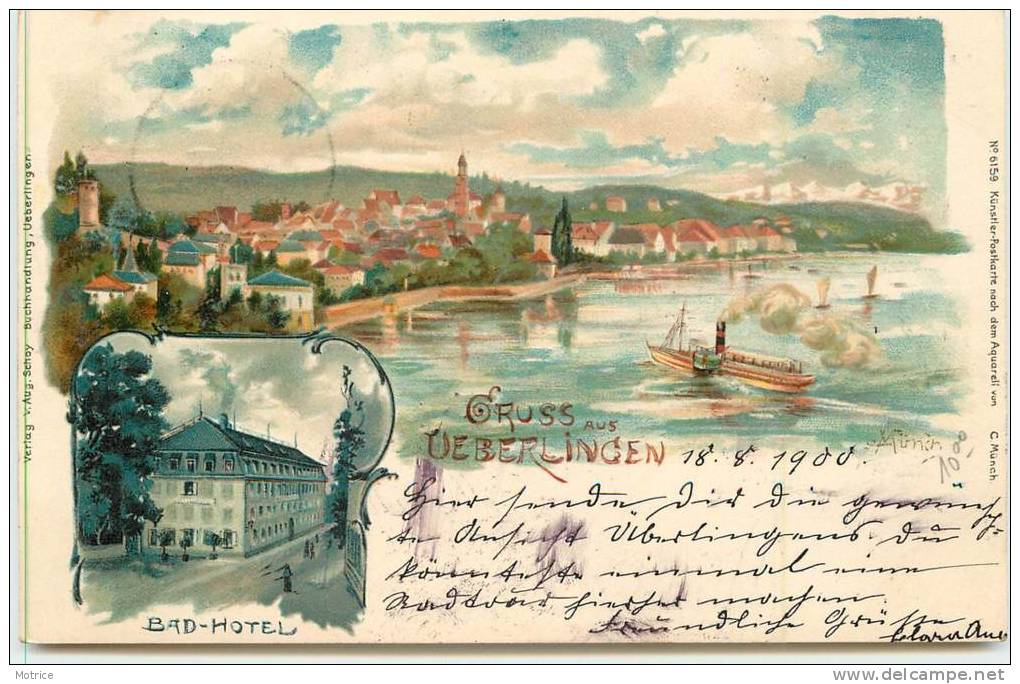 Verlag v. Aug. Schoy Buchhandlung, Ueberlingen
Nº 6159 Künstler-Postkarte nach dem Aquarell von C. Münch
GRUSS AUS
UEBERLINGEN
C Münch
18. 8. 1900.
Hier sende Dir die gewünsch-
te Ansicht Überlingens. Du
könntest einmal eine
Radtour hierher machen.
Freundliche Grüsse
Clara
BAD-HOTEL
Motrice
www.delcampe.net